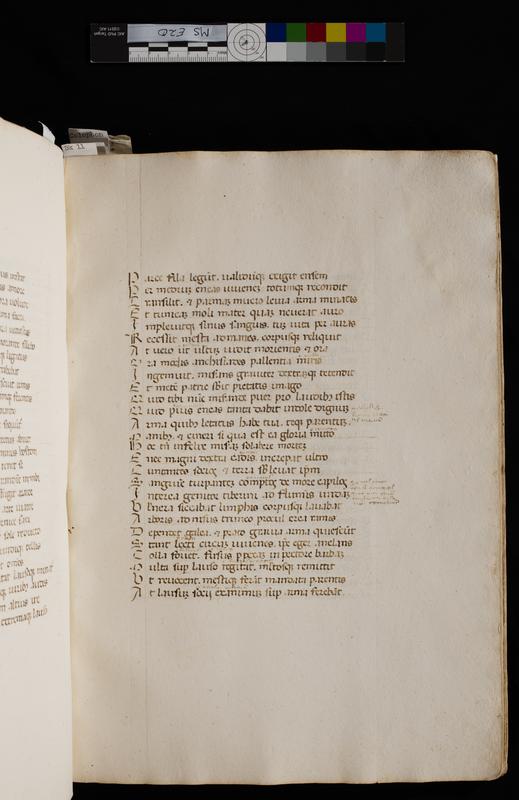 MS E20
Colophon
Bk 11
Parce fila legūt. ualidumq; exigit ensem
Per mediuȝ eneas iuueneȝ totumq; recondit
Transilit. & parmaȝ mucro leuia arma minacis
Et tunicaȝ molli mater quaȝ neuerat auro
Impleuitq; sinus sanguis. tuȝ uita per auras
Recessit mesta ad manes. corpusq; reliquit
At uero ut ultuȝ uidit morientis & ora
Ora modis. anchisiades pallentia miris
Ingemuit. miserans grauiter dextraȝq; tetendit
Et mētē patrie sbiit pietatis imago
Quid tibi nūc miserande puer pro laudibȝ istis
Quid pius eneas tanta dabit indole dignuȝ
Arma quibȝ letatus habe tua. teq; parentuȝ
Manibȝ & cineri si qua est ea gloria mitto
Hoc tn̄ infelix miseraȝ solabere morteȝ
Enee magni dextra cadis. increpat ultro
Cunctantes socios & terra sbleuat ip̄m
Sanguine turpanteȝ comptos de more capillos
Interea genitor tiberini ad fluminis undaȝ
Vlnera siccabat limphis corpusq; leuabat
Arboris adnisus trunco procul erea ramis
Dependet galea. & prato grauia arma quiescūt
Stant lecti circuȝ iuuenes. ip̄e eger anelans
Colla fouet. fusus ꝓpexaȝ in pectore barbaȝ
Multa sup lauso rogitat. multosq; remittit
Qui reuocent. mestiq; ferāt mandata parentis
At lausuȝ socii exanimuȝ sup arma ferebāt